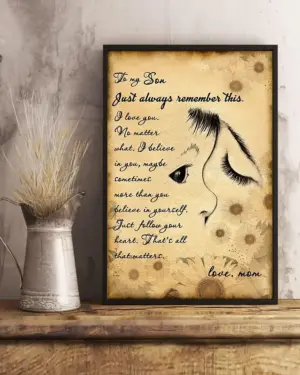 To my Son
Just always remember this.
I love you.
No matter
what, I believe
in you, maybe
sometimes
more than you
believe in yourself.
Just follow your
heart. That's all
that matters.
love, mom